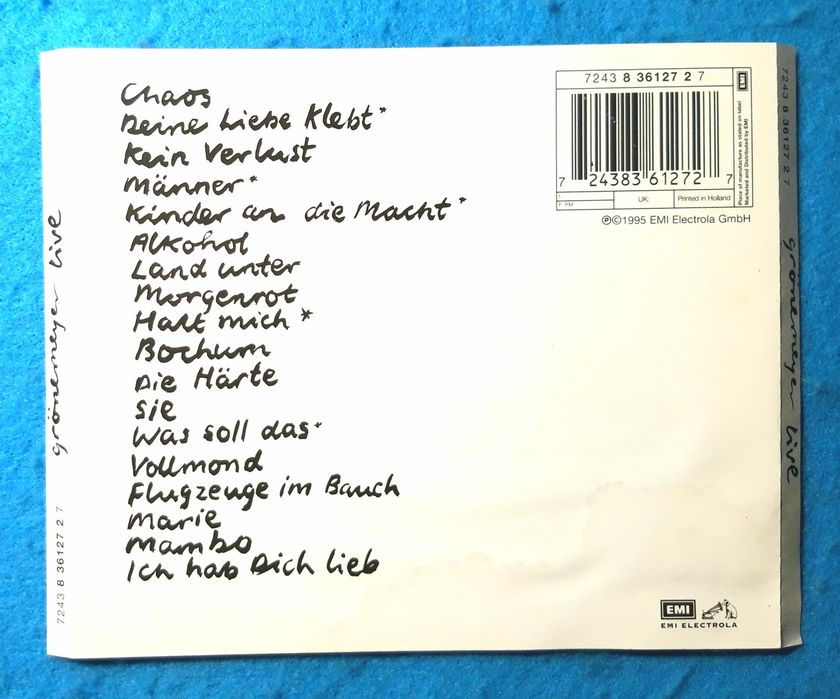 Chaos
Deine Liebe Klebt*
Kein Verlust
Männer*
Kinder an die Macht*
Alkohol
Land unter
Morgenrot
Halt mich*
Bochum
Die Härte
Sie
Was soll das*
Vollmond
Flugzeuge im Bauch
Marie
Mambo
Ich hab Dich lieb
7243 8 36127 2 7
EMI
Place of manufacture as stated on label
Marketed and Distributed by EMI
7 24383 61272 7
UK:
Printed in Holland
℗©1995 EMI Electrola GmbH
grönemeyer live
7243 8 36127 2 7
7243 8 36127 2 7
grönemeyer live
EMI
EMI ELECTROLA